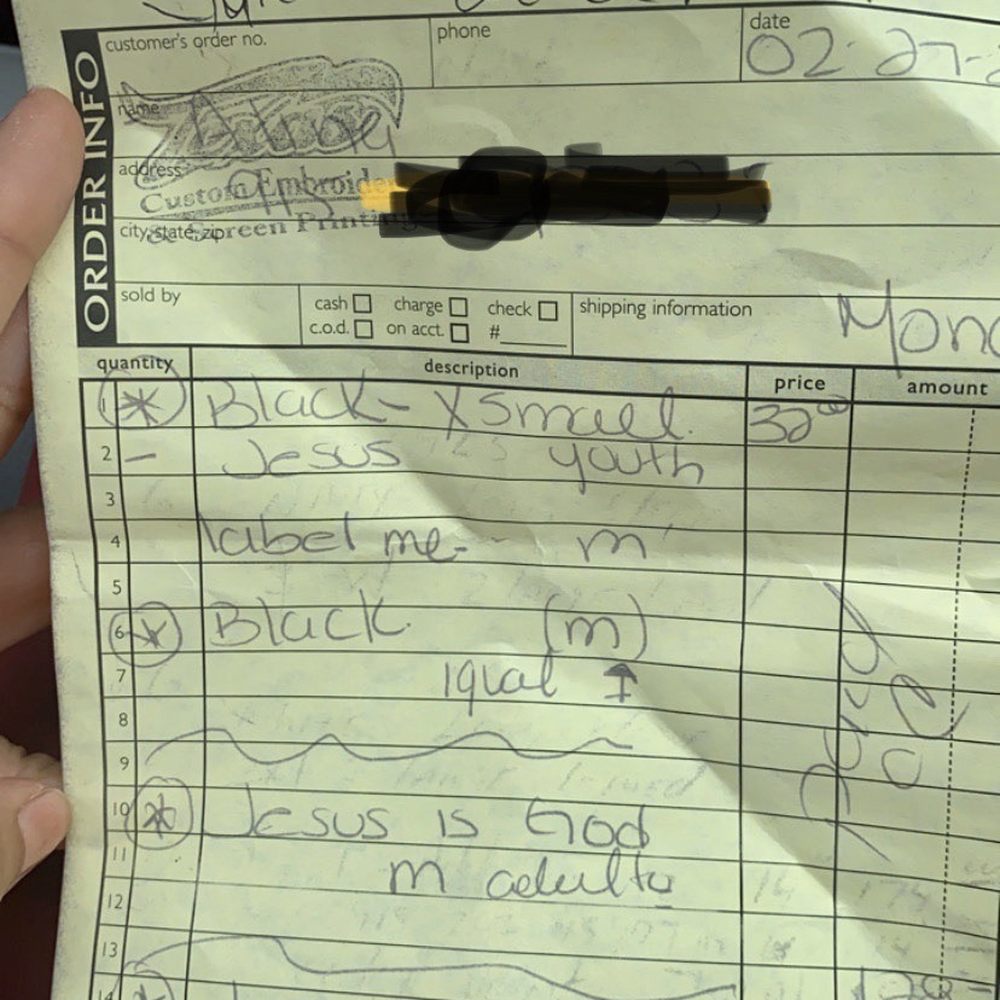 customer's order no. phone date
02-27-2
name
address
Custom Embroide
& Screen Printing
city, state, zip
ORDER INFO
sold by cash charge check shipping information
c.o.d. on acct. #
Mon
quantity description price amount
1 * Black - XSmall. 32.00
2 - Jesus youth
3
4 label me - m
5
6 * Black. (m)
7 iqual ↑
8
9
10 * Jesus is God
11 m adulto
12
13
14
Paid